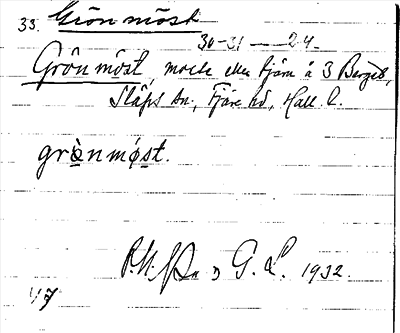 33. Grönmöst
30-31 — 24.
Grönmöst, mosse eller kjärn å 3 Berged,
Släps sn., Fjäre hd, Hall. l.
grönmöst.
G. L. 1932.
47